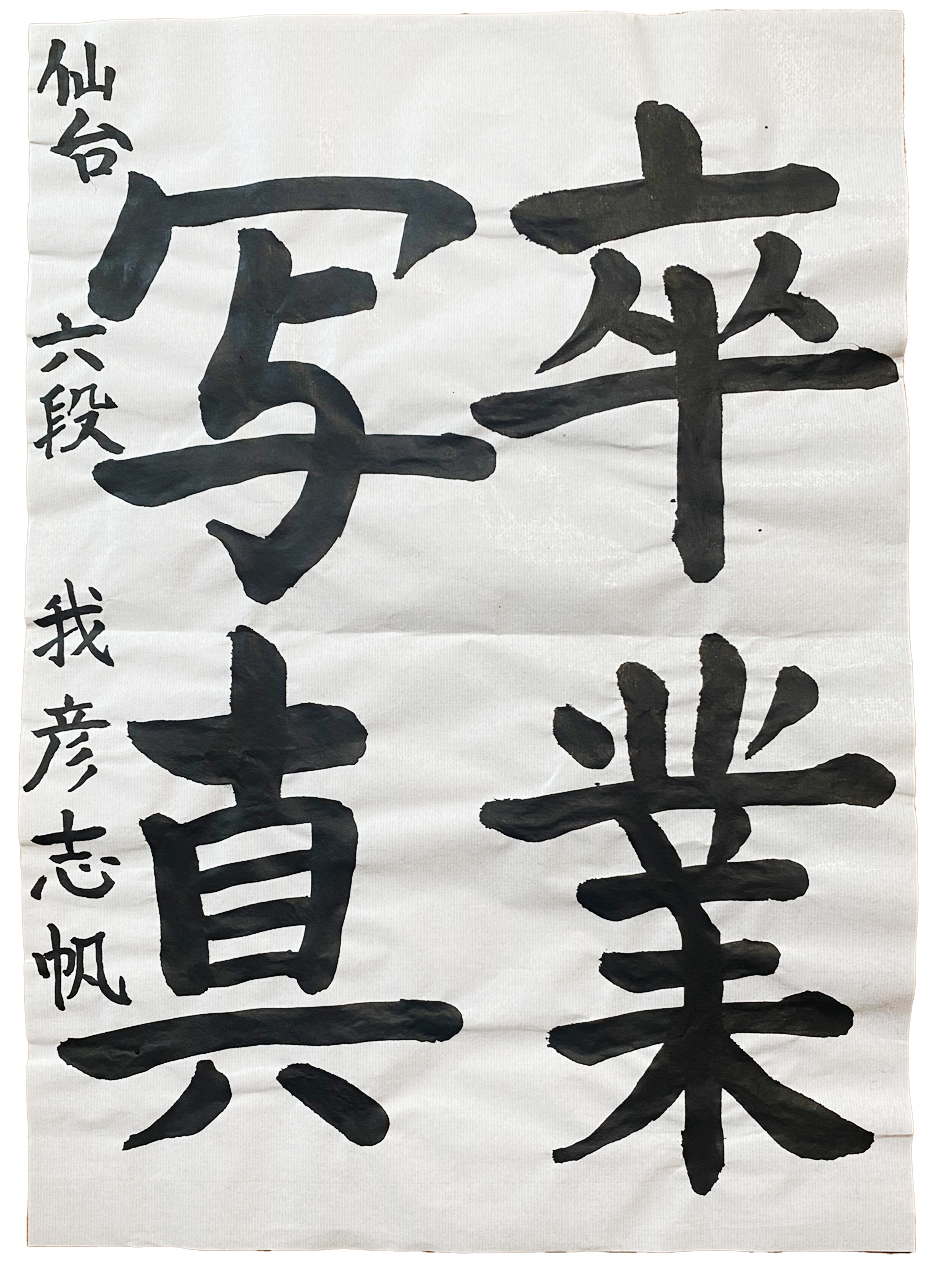 卒業
写真
仙台 六段 我彦志帆